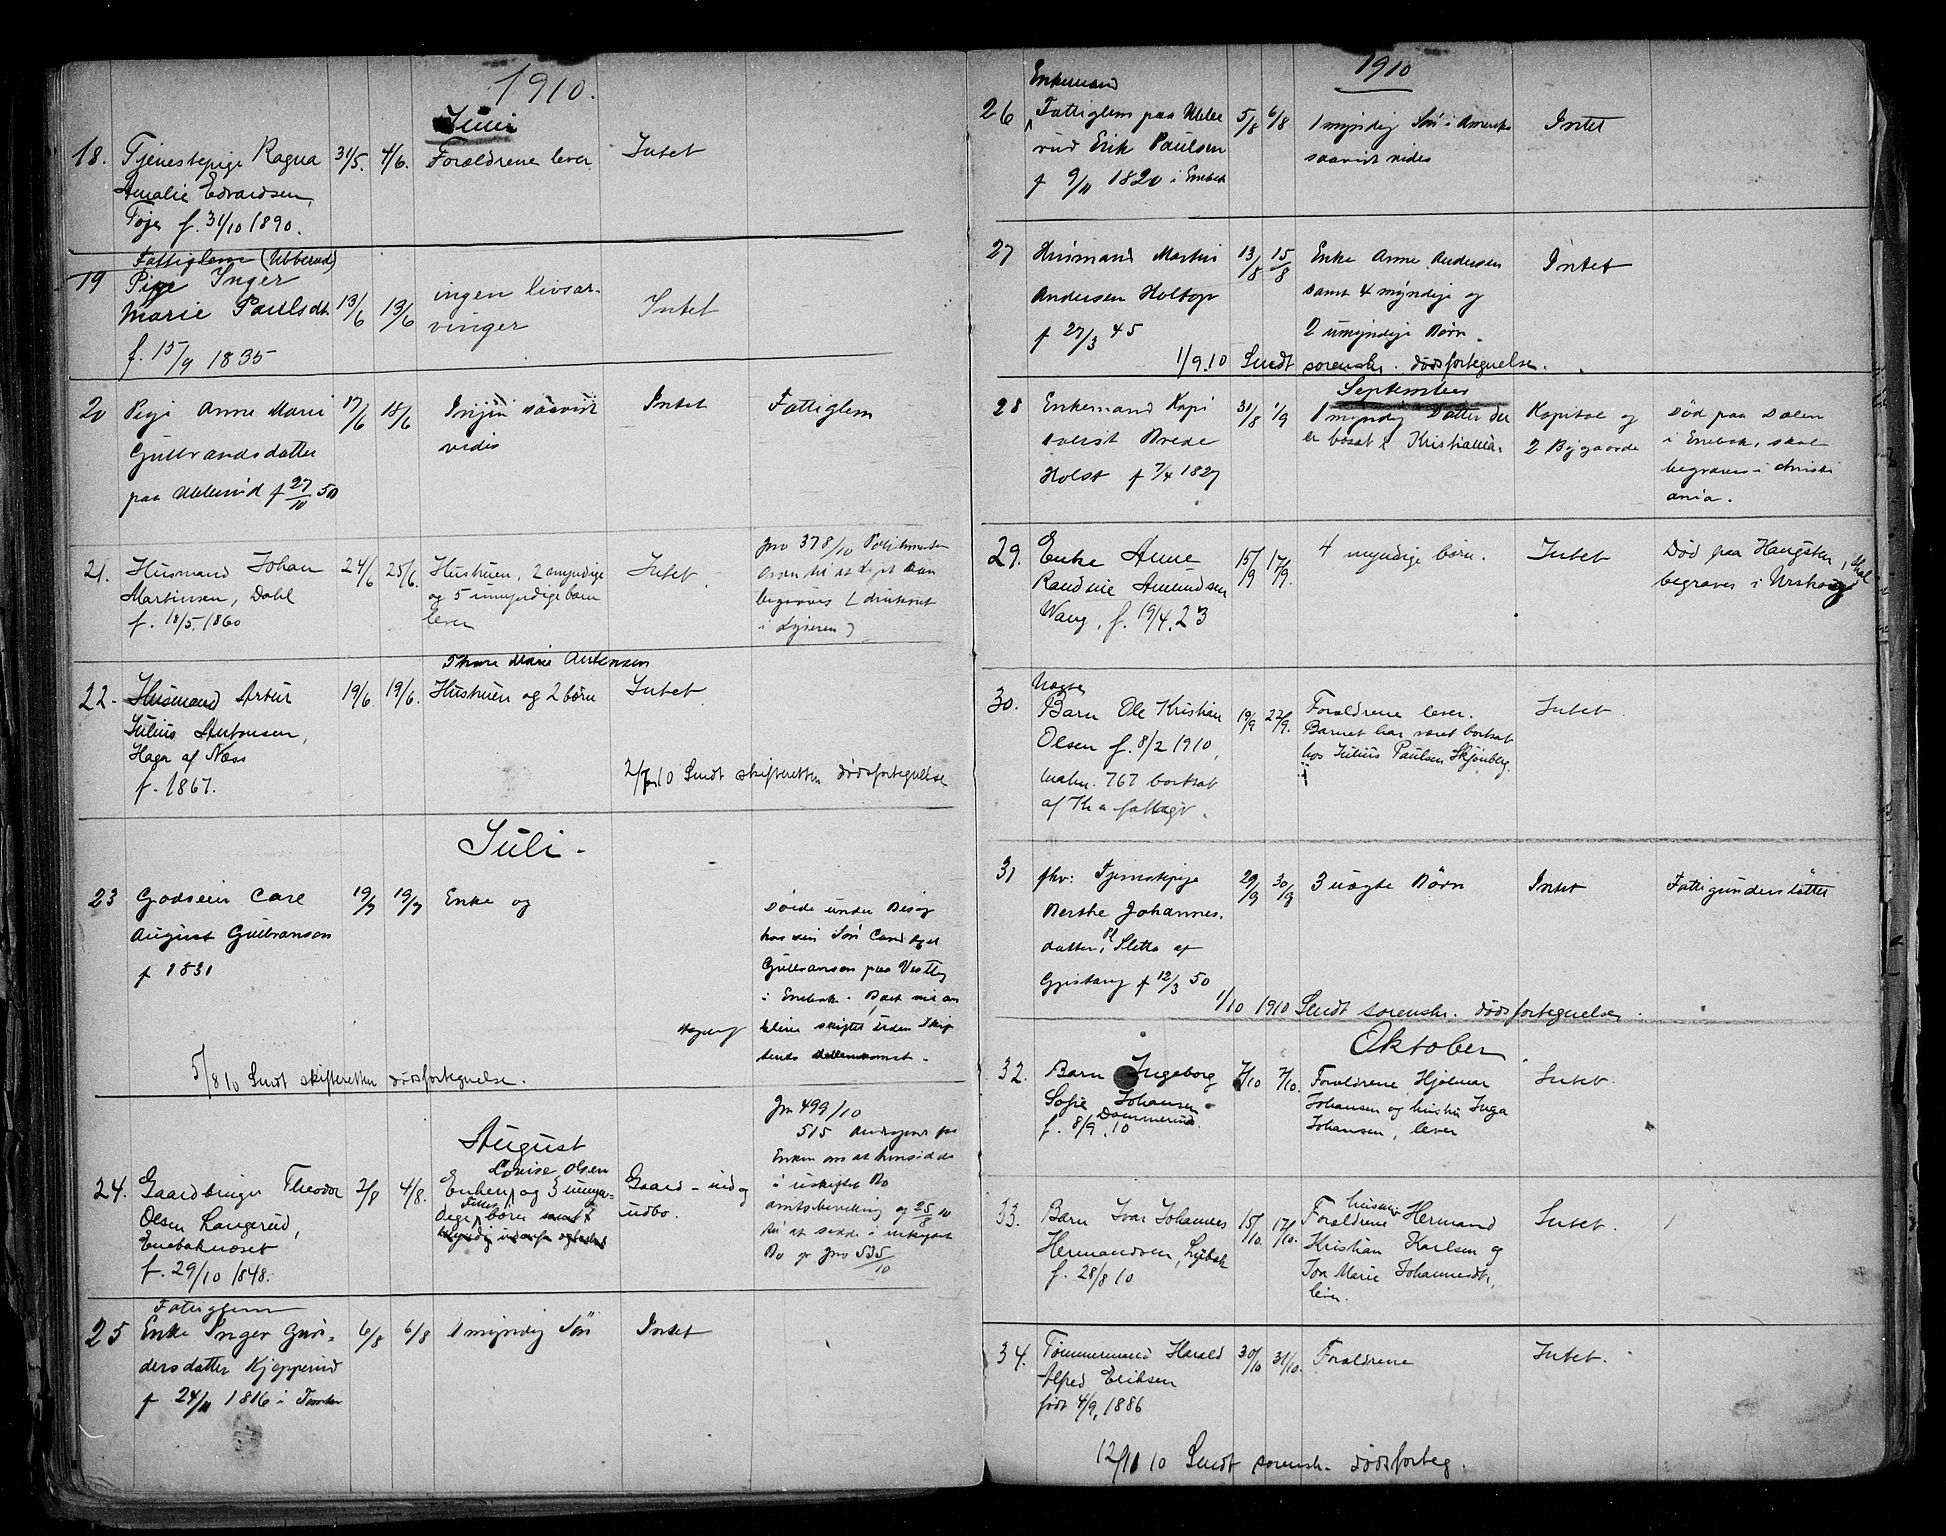 1910.
Juni
18. Tjenestepige Ragna 31/5. 4/6. Forældrene lever. Intet
Amalie Edvardsen,
f. 31/10 1890.
Fattiglem (Ubberud)
19 Pige Inger 13/6 13/6 ingen livsar- Intet
Marie Paulsdt. vinger
f. 15/9 1835
20 Pige Anne Marie 17/6 18/6 Ingen saavidt Intet Fattiglem
Gulbrandsdatter vides
paa f 27/10 50
21. Husmand Johan 24/6 25/6. Hustruen, 2 myndige Intet. Jnv 378/10
Martinsen, Dahl og 5 umyndige børn
f. 18/5. 1860 lever begraves (druknet
i Lyseren)
Antonsen
22. Husmand Artur 19/6. 19/6. Hustruen og 2 børn Intet.
Julius Antonsen,
Haga af Næss
f. 1867.
2/7 10 Sendt skifteretten dødsfortegnelse
Juli -
23 Godseier Carl 19/7 19/7 Enke og
August Gulbranson
f 1831
Døide under Besøg
hos sin Søn Cand
Gulbranson paa Vestby
i Enebak.
5/8 10 Sendt skifteretten dødsfortegnelse.
August
Jnv 499/10
515
Lovise Olsen
24. Gaardbruger Theodor 2/8 4/8. Enken og 3 umyn- Gaard- ind og
Olsen Langerud, dige børn udbo.
Enebaknæset
f. 29/10 1848.
i uskiftet Bo
25/8 10
Bo jnv 535/10
Fattiglem
25 Enke Inger Gun- 6/8 6/8 1 myndig Søn Intet
dersdatter Kjepperud
f 24/11 1816 i
1910
Enkemand
26 Fattiglem paa 5/8 6/8 1 myndig Søn i Amerika Intet
rud Erik Paulsen saavidt vides
f 9/11 1820 i Enebak
27 Husmand Martin 13/8 15/8 Enke Anne Andersen Intet
Andersen Holtop samt 4 myndige og
f 27/3 45 2 umyndige Børn.
1/9.10 Sendt sorenskr. dødsfortegnelse.
September
28 Enkemand 31/8 1/9 1 myndig Datter der Kapital og Død paa Dalen
Brede er bosat i Kristiania. 2 Bygaarde i Enebak, skal
Holst f 7/4 1827 begraves i Christi
ania.
29. Enke Anne 15/9 17/9. 4 myndige børn. Intet Død paa Haugsten, skal
Randine Amundsen begraves i Urskog
Wang, f. 19/4. 23
Uægte
30. Barn Ole Kristian 19/9 22/9. Forældrene lever. Intet.
Olsen f. 8/2 1910, Barnet har været bortsat
767 bortsat hos Julius Paulsen Skjønberg.
af Kr a fattagv.
31 fhv: Tjenestepige 29/9 30/9 3 uægte Børn Intet Fattigunderstøttet
Berthe Johannes.
datter, Pl Sletta af
f 12/3 50
1/10 1910 Sendt sorenskr. dødsfortegnelse.
Oktober
32. Barn Ingeborg 7/10 7/10. Forældrene Hjalmar Intet.
Sofie Johansen Johansen og hustru Inga
Dammerud. Johansen, lever
f. 8/9. 10
husmd
33. Barn Ivar Johannes 15/10. 17/10. Forældrene Hermand Intet.
Hermandsen, Kristian Karlsen og
f. 28/8 10 Marie Johannesdt.,
lever.
34. Tømmermand Harald 30/10 31/10. Forældrene Intet.
Alfred Eriksen
født 4/9, 1886
12/11 10 Sendt sorenskr. dødsforteg.